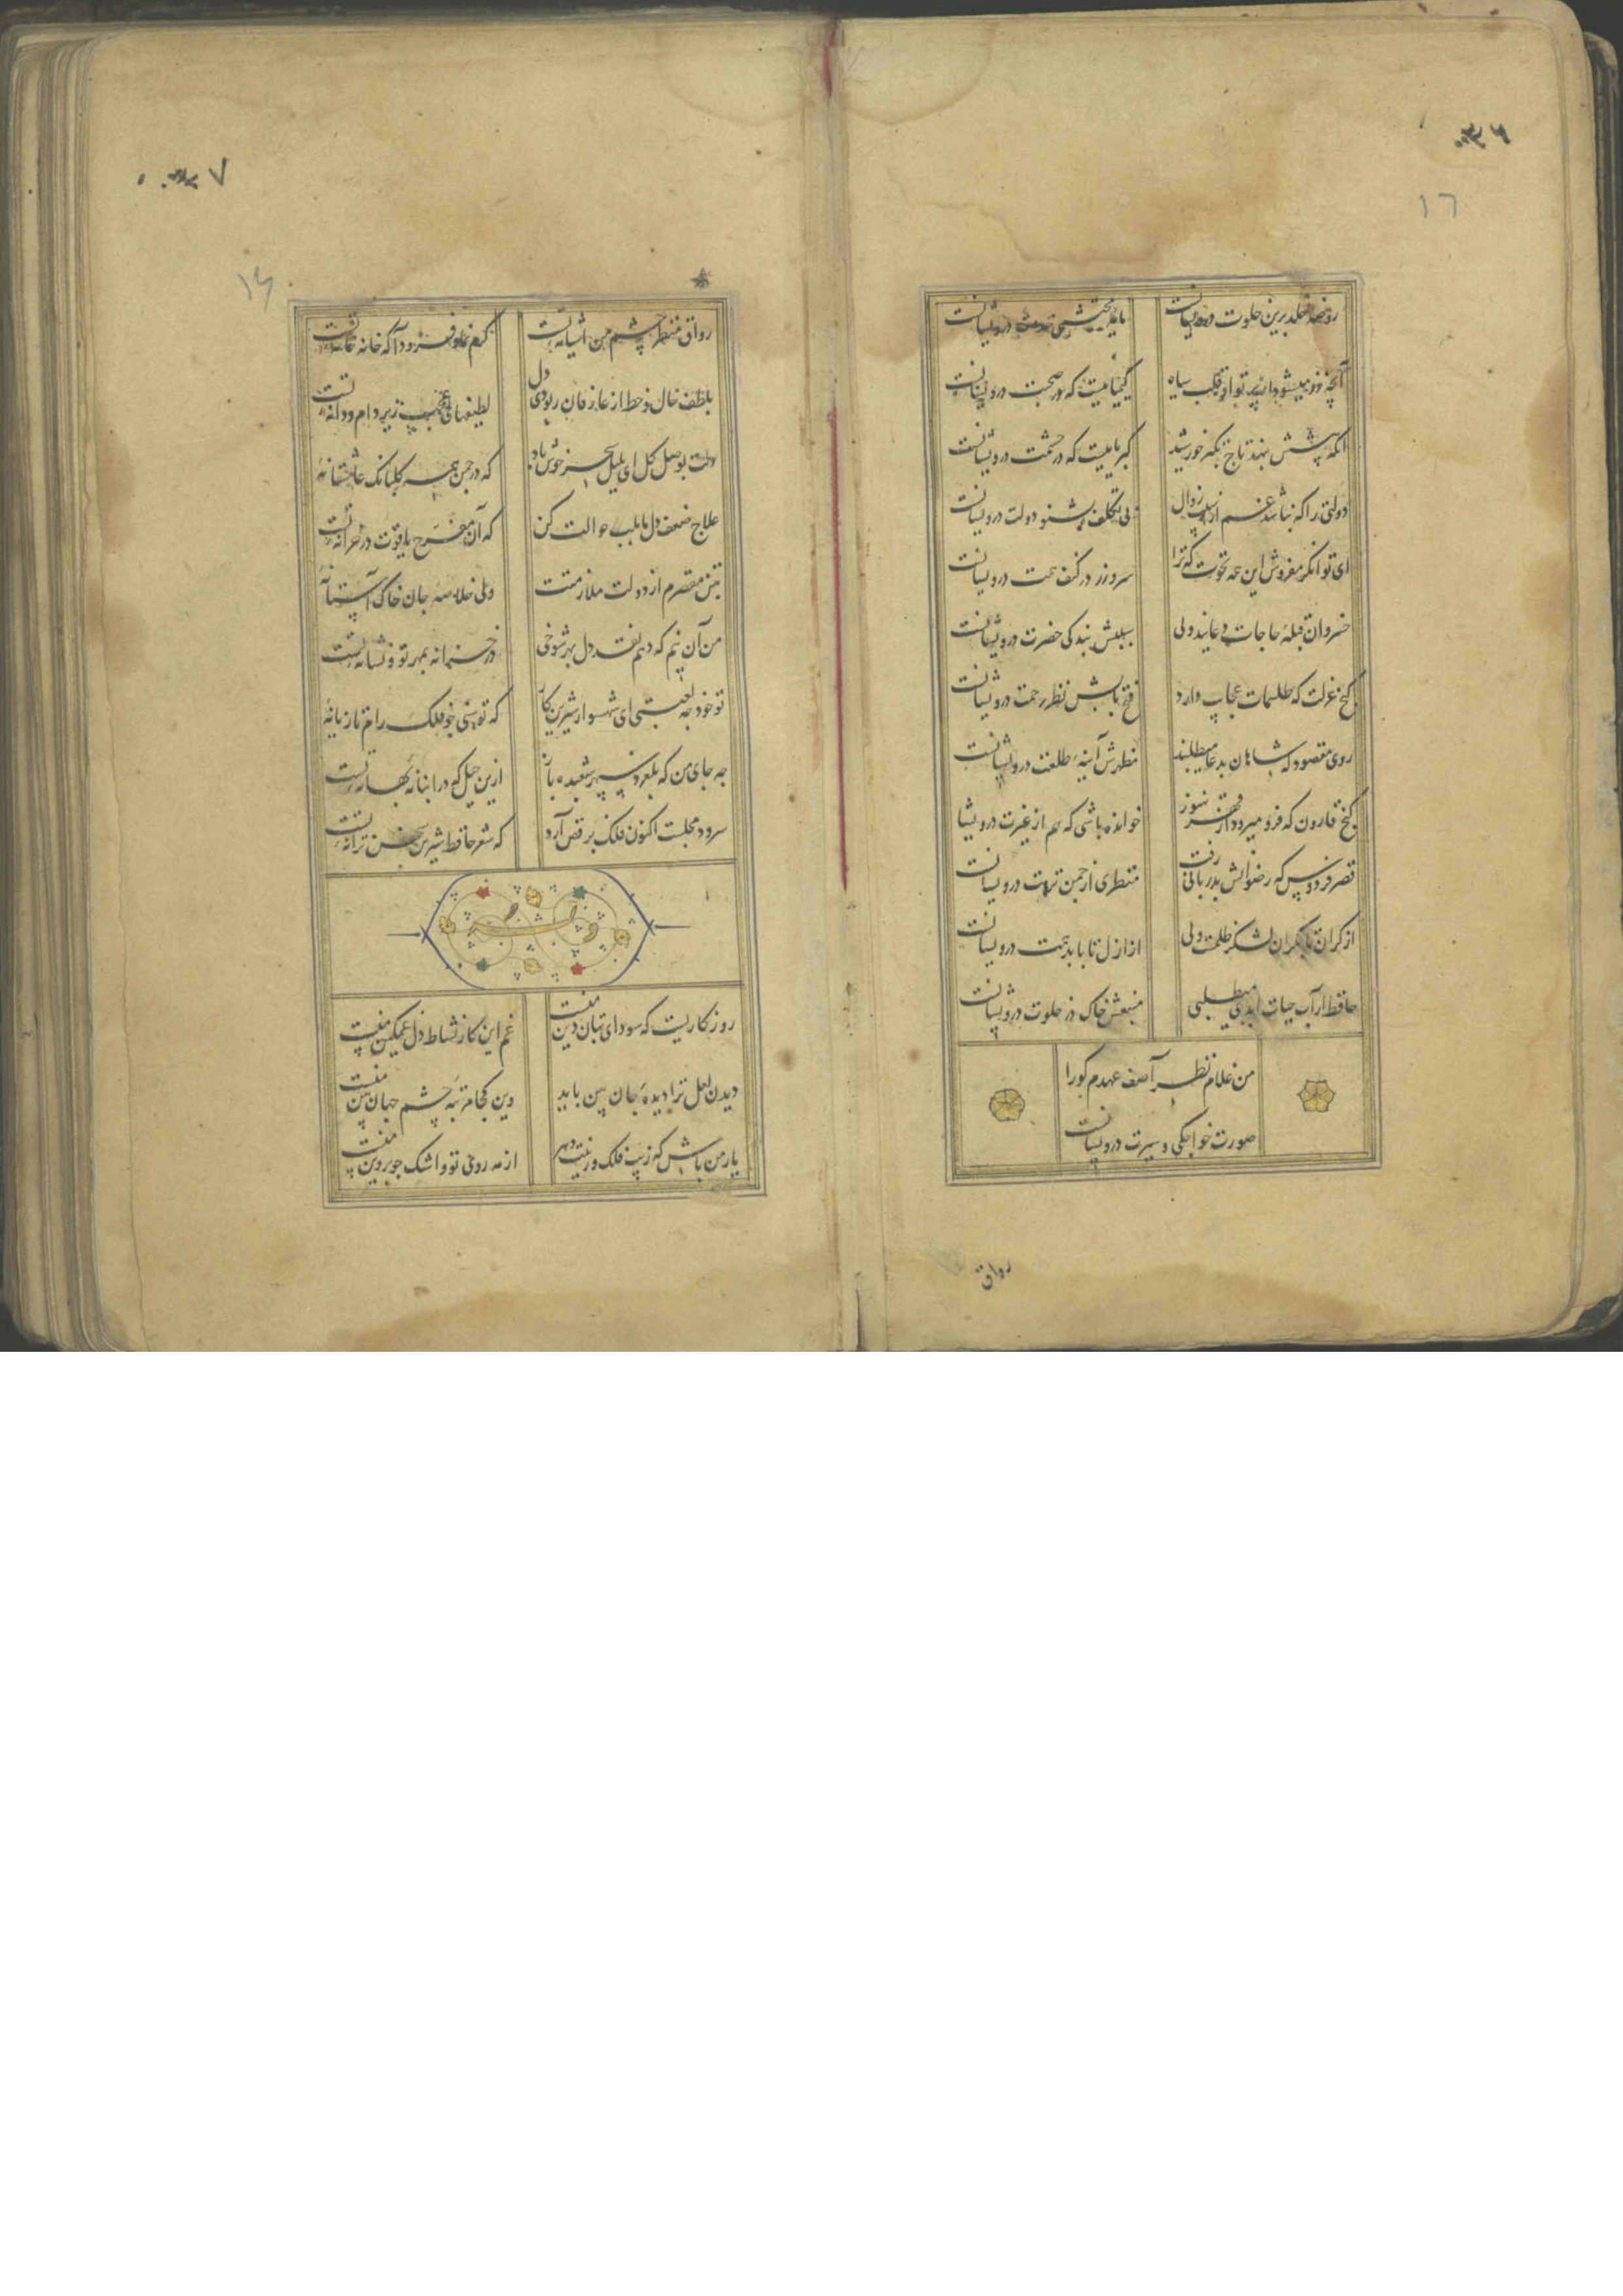 ۳۶
۱٦
روضه خلد برین خلوت درویشانست
مایه محتشمی خدمت درویشانست
آنچه زر میشود از پرتو او قلب سیاه
کیمیاییست که در صحبت درویشانست
انکه پیشش بنهد تاج تکبر خورشید
کبریاییست که در حشمت درویشانست
دولتی را که نباشد غم از آسیب زوال
بی تکلف بشنو دولت درویشانست
ای توانکر مفروش این همه نخوت که ترا
سر و زر در کنف همت درویشانست
خسروان قبلۀ حاجات دعایند ولی
سببش بندکی حضرت درویشانست
کنج عزلت که طلسمات عجایب دارد
فتح بابش نظر رحمت درویشانست
روی مقصود که شاهان بدعا میطلبند
مظهرش آینه طلعت درویشانست
کنج قارون که فرو میرود از قهر هنوز
خوانده باشی که هم از غیرت درویشا
قصر فردوس که رضوانش بدربانی رفت
منظری از چمن نزهت درویشانست
از کران تا بکران لشکر ظلمت ولی
از ازل تا بابد همت درویشانست
حافظ ار آب حیات ابدی میطلبی
منبعش خاک در خلوت درویشانست
من غلام نظر آصف عهدم کورا
صورت خواجکی و سیرت درویشانست
رواق
۷
۱۶
رواق منظر چشم من آشیانه تست
کرم نما و فرود آ که خانه خانه تست
بلطف خال و خط از عارفان ربودی دل
لطیفهای عجب زیر دام و دانه تست
دلت بوصل کل ای بلبل سحر خوش باد
که در چمن همه کلبانک عاشقانۀ
علاج ضعف دل ما بلب حوالت کن
که آن مفرح یاقوت در خزانه تست
بتن مقصرم از دولت ملازمتت
ولی خلاصه جان خاک آستانۀ
من آن نیم که دهم نقد دل بهر شوخی
در خزانه بمهر تو و نشانه تست
تو خود چه لعبتی ای شهسوار شیرین کار
که توسنی چو فلک رام تازیانۀ
چه جای من که بلغزد سپهر شعبده باز
ازین حیل که در انبانۀ بهانه تست
سرود مجلست اکنون فلک برقص آرد
که شعر حافظ شیرین سخن ترانه تست
روزکاریست که سودای بتان دین منست
غم این کار نشاط دل غمکین منست
دیدن لعل ترا دیدۀ جان بین باید
وین کجا مرتبۀ چشم جهان بین منست
یار من باش که زیب فلک و زینت دهر
از مه روی تو و اشک چو پروین منست